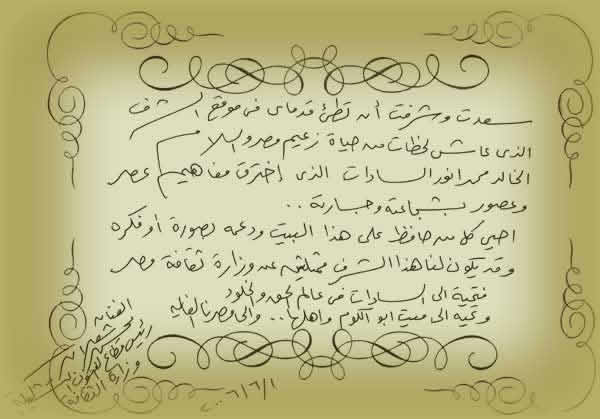 سعدت وشرفت أن تطئ قدماى فى موقع الشرف
الذى عاش لحظات من حياة زعيم مصر والسلام
الخالد محمد أنور السادات الذى إخترق مفاهيم عصر
وعصور بشجاعة وجسارة ..
احيي كل من حافظ على هذا البيت ودعمه بصورة أو فكره
وقد يكون لنا هذا الشرف ممثلين عن وزارة ثقافة مصر
فتحية الى السادات فى عالم الحق والخلود
وتحية الى ميت ابو الكوم واهلها .. والى مصرنا الغاليه
الفنان
رئيس قطاع الفنون
وزارة الثقافة